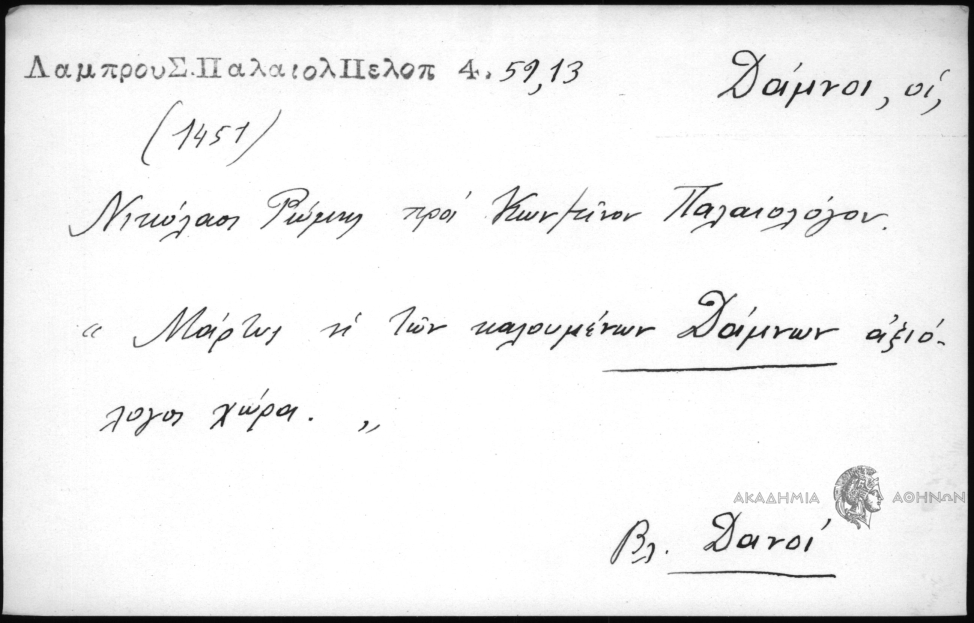 Λαμπρου Σ. Παλαιολ Πελοπ 4. 59,13
Δάμνοι, οἱ,
(1451)
Νικόλαος Ρώμης πρὸς Κων/τῖνον Παλαιολόγον.
“ Μάρτυς ἡ τῶν καλουμένων Δάμνων ἀξιό-
λογος χώρα. „
ΑΚΑΔΗΜΙΑ ΑΘΗΝΩΝ
Βλ. Δανοί